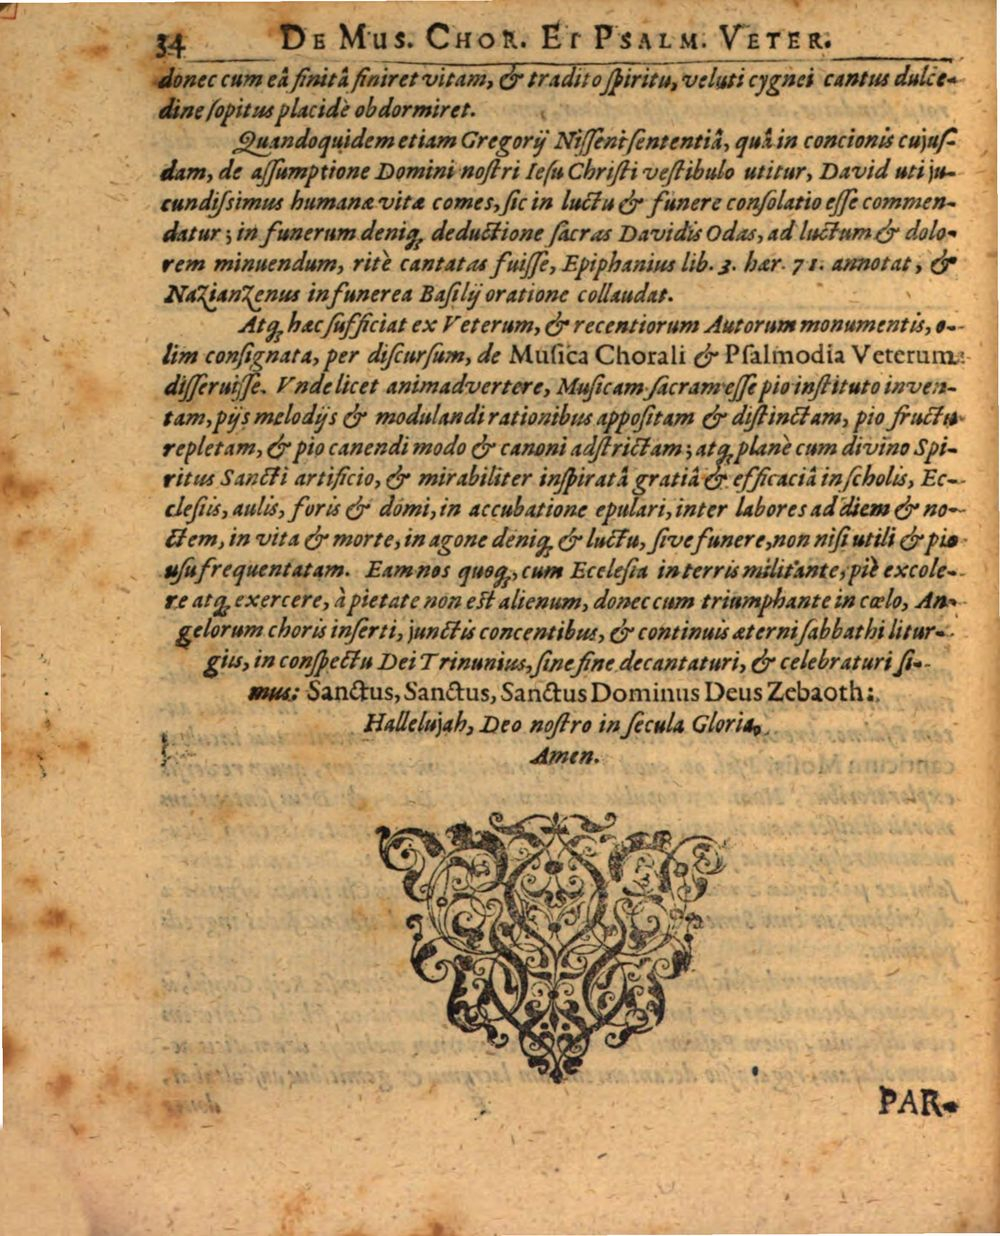 34 DE MUS. CHOR. ET PSALM. VETER.
donec cum eâ finitâ finiret vitam, & tradito ſpiritu, veluti cygnei cantus dulce-
dine ſopitus placidè obdormiret.
Quandoquidem etiam Gregorij Niſſeni ſententiâ, quâ in concionis cujuſ-
dam, de aſſumptione Domini noſtri Ieſu Chriſti veſtibulo utitur, David uti ju-
cundiſsimus humanæ vitæ comes, ſic in luctu & funere conſolatio eſſe commen-
datur; in funerum deniq; deductione ſacras Davidis Odas, ad luctum & dolo-
rem minuendum, ritè cantatas fuiſſe, Epiphanius lib. 3. hær. 71. annotat, &
Nazianzenus in funerea Baſilij oratione collaudat.
Atq; hæc ſufficiat ex Veterum, & recentiorum Autorum monumentis, o-
lim conſignata, per diſcurſum, de Muſica Chorali & Pſalmodia Veterum
diſſeruiſſe. Vnde licet animadvertere, Muſicam ſacram eſſe pio inſtituto inven-
tam, pijs melodijs & modulandi rationibus appoſitam & diſtinctam, pio fructu
repletam, & pio canendi modo & canoni adſtrictam; atq; planè cum divino Spi-
ritus Sancti artificio, & mirabiliter inſpiratâ gratiâ & efficaciâ in ſcholis, Ec-
cleſiis, aulis, foris & domi, in accubatione epulari, inter labores ad diem & no-
ctem, in vita & morte, in agone deniq; & luctu, ſive funere, non niſi utili & pio
uſu frequentatam. Eam nos quoq;, cum Eccleſia in terris militante, piè excole-
re atq; exercere, à pietate non eſt alienum, donec cum triumphante in cœlo, An-
gelorum choris inſerti, junctis concentibus, & continuis æterni ſabbathi litur-
giis, in conſpectu Dei Trinunius, ſine fine decantaturi, & celebraturi ſi-
mus: Sanctus, Sanctus, Sanctus Dominus Deus Zebaoth:
Hallelujah, Deo noſtro in ſecula Gloria,
Amen.
PAR-